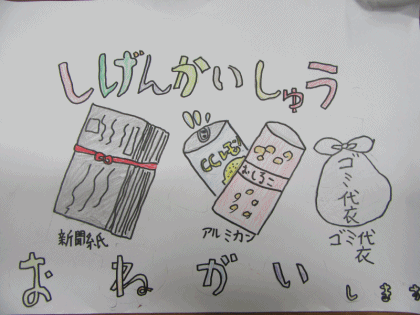 しげんかいしゅう
CCレモ
おしるこ
ゴミ代衣
新聞紙
アルミカン
ゴミ代衣
おねがい
します